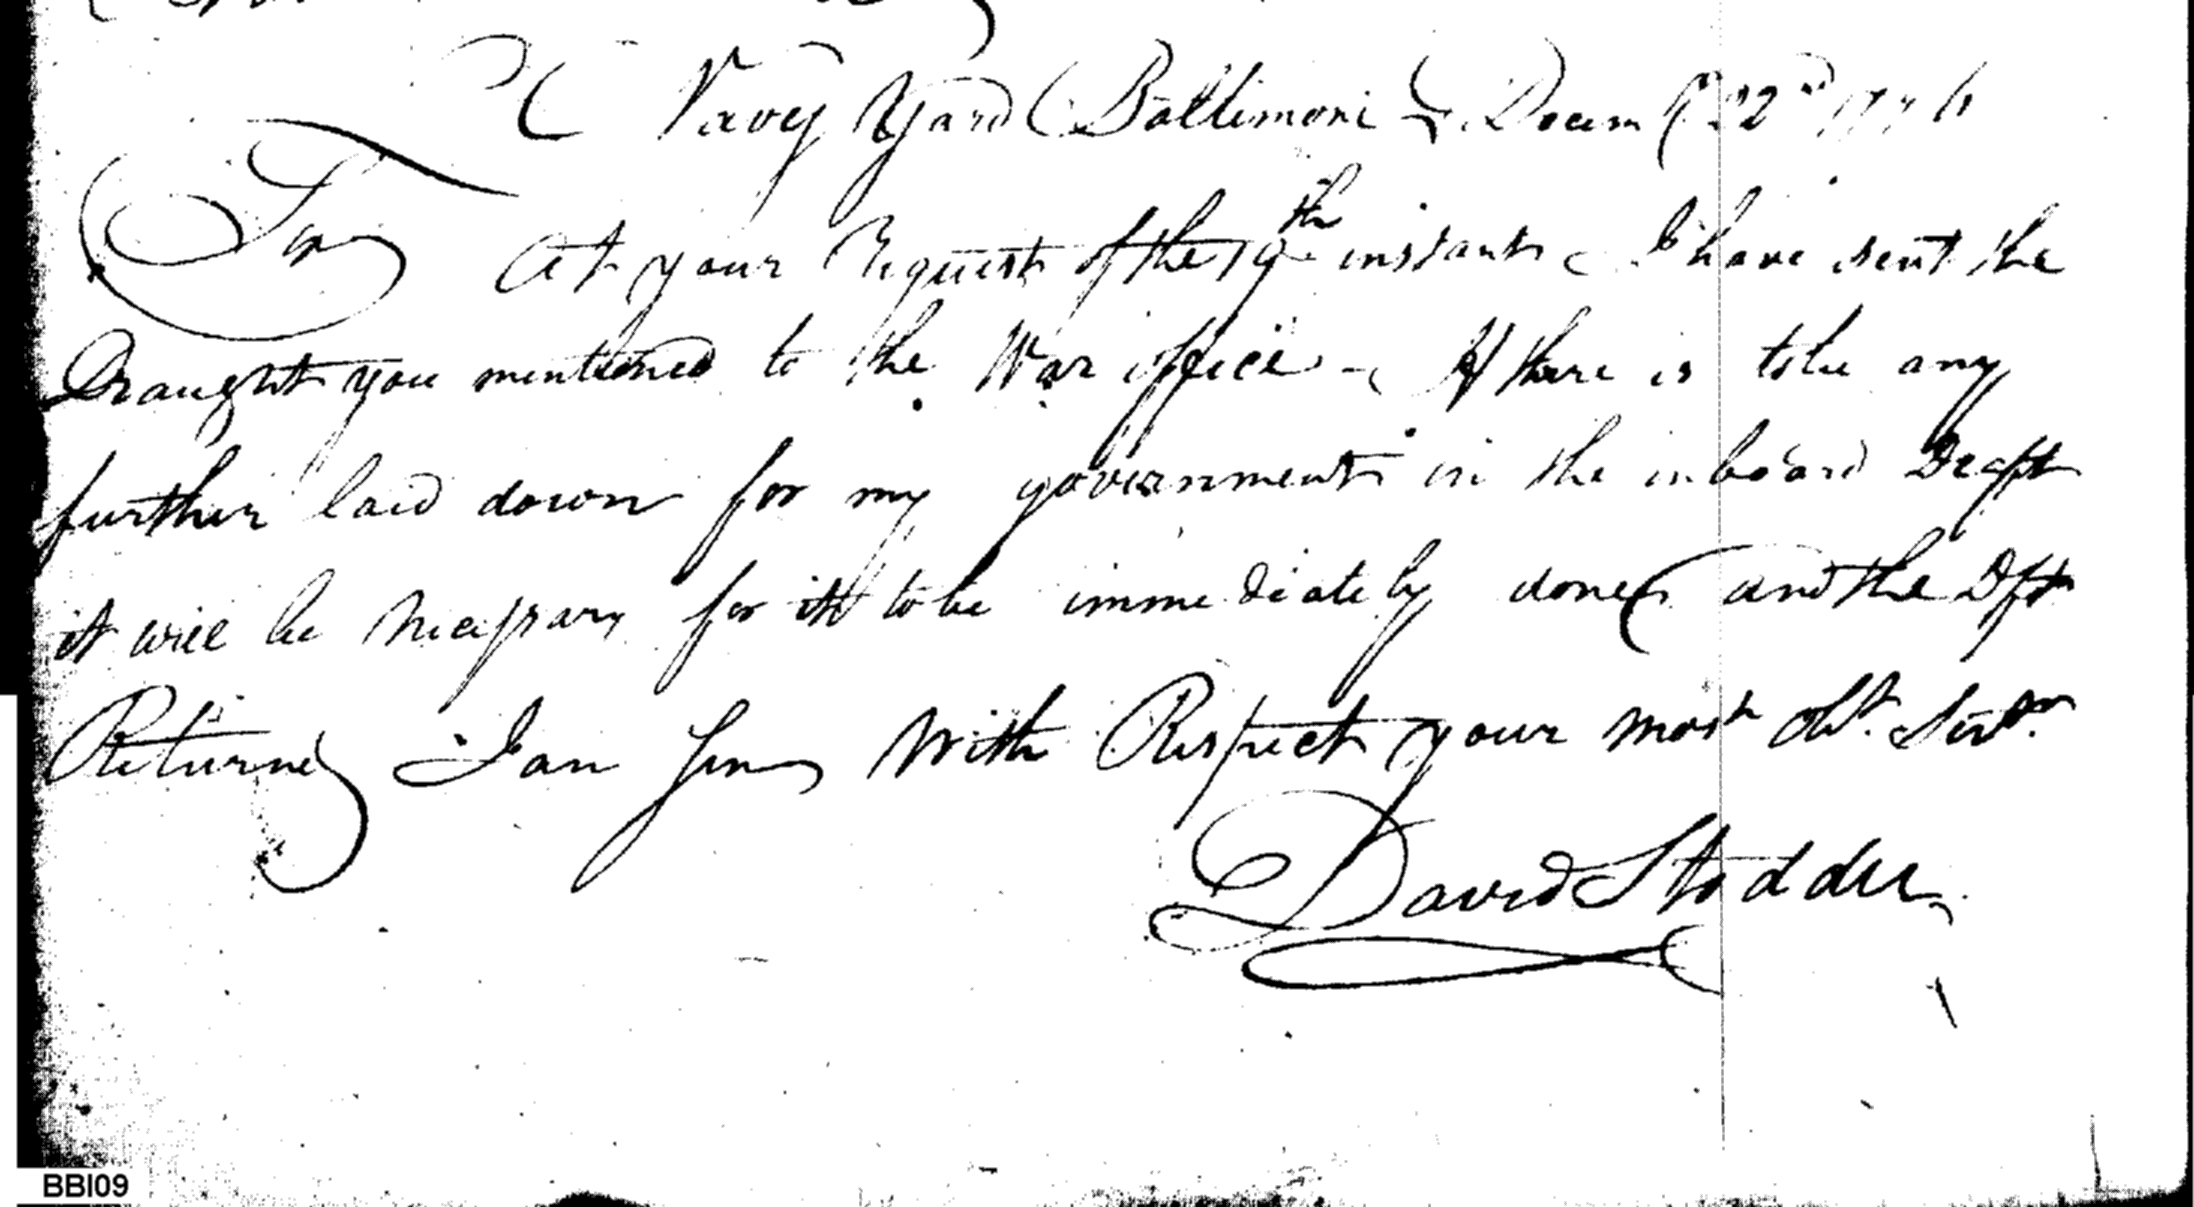 Navey Yard Baltimore Decem 22nd 1796
Sir At your Request of the 19th instant I have sent the
Draught you mentioned to the War office - If there is tobe any
further laid down for my government in the inboard Draft
it will be Necessary for it tobe immediately done and the Dft
Returned I am Sir With Respect your most obt. Servt.
David Stodder
BBI09